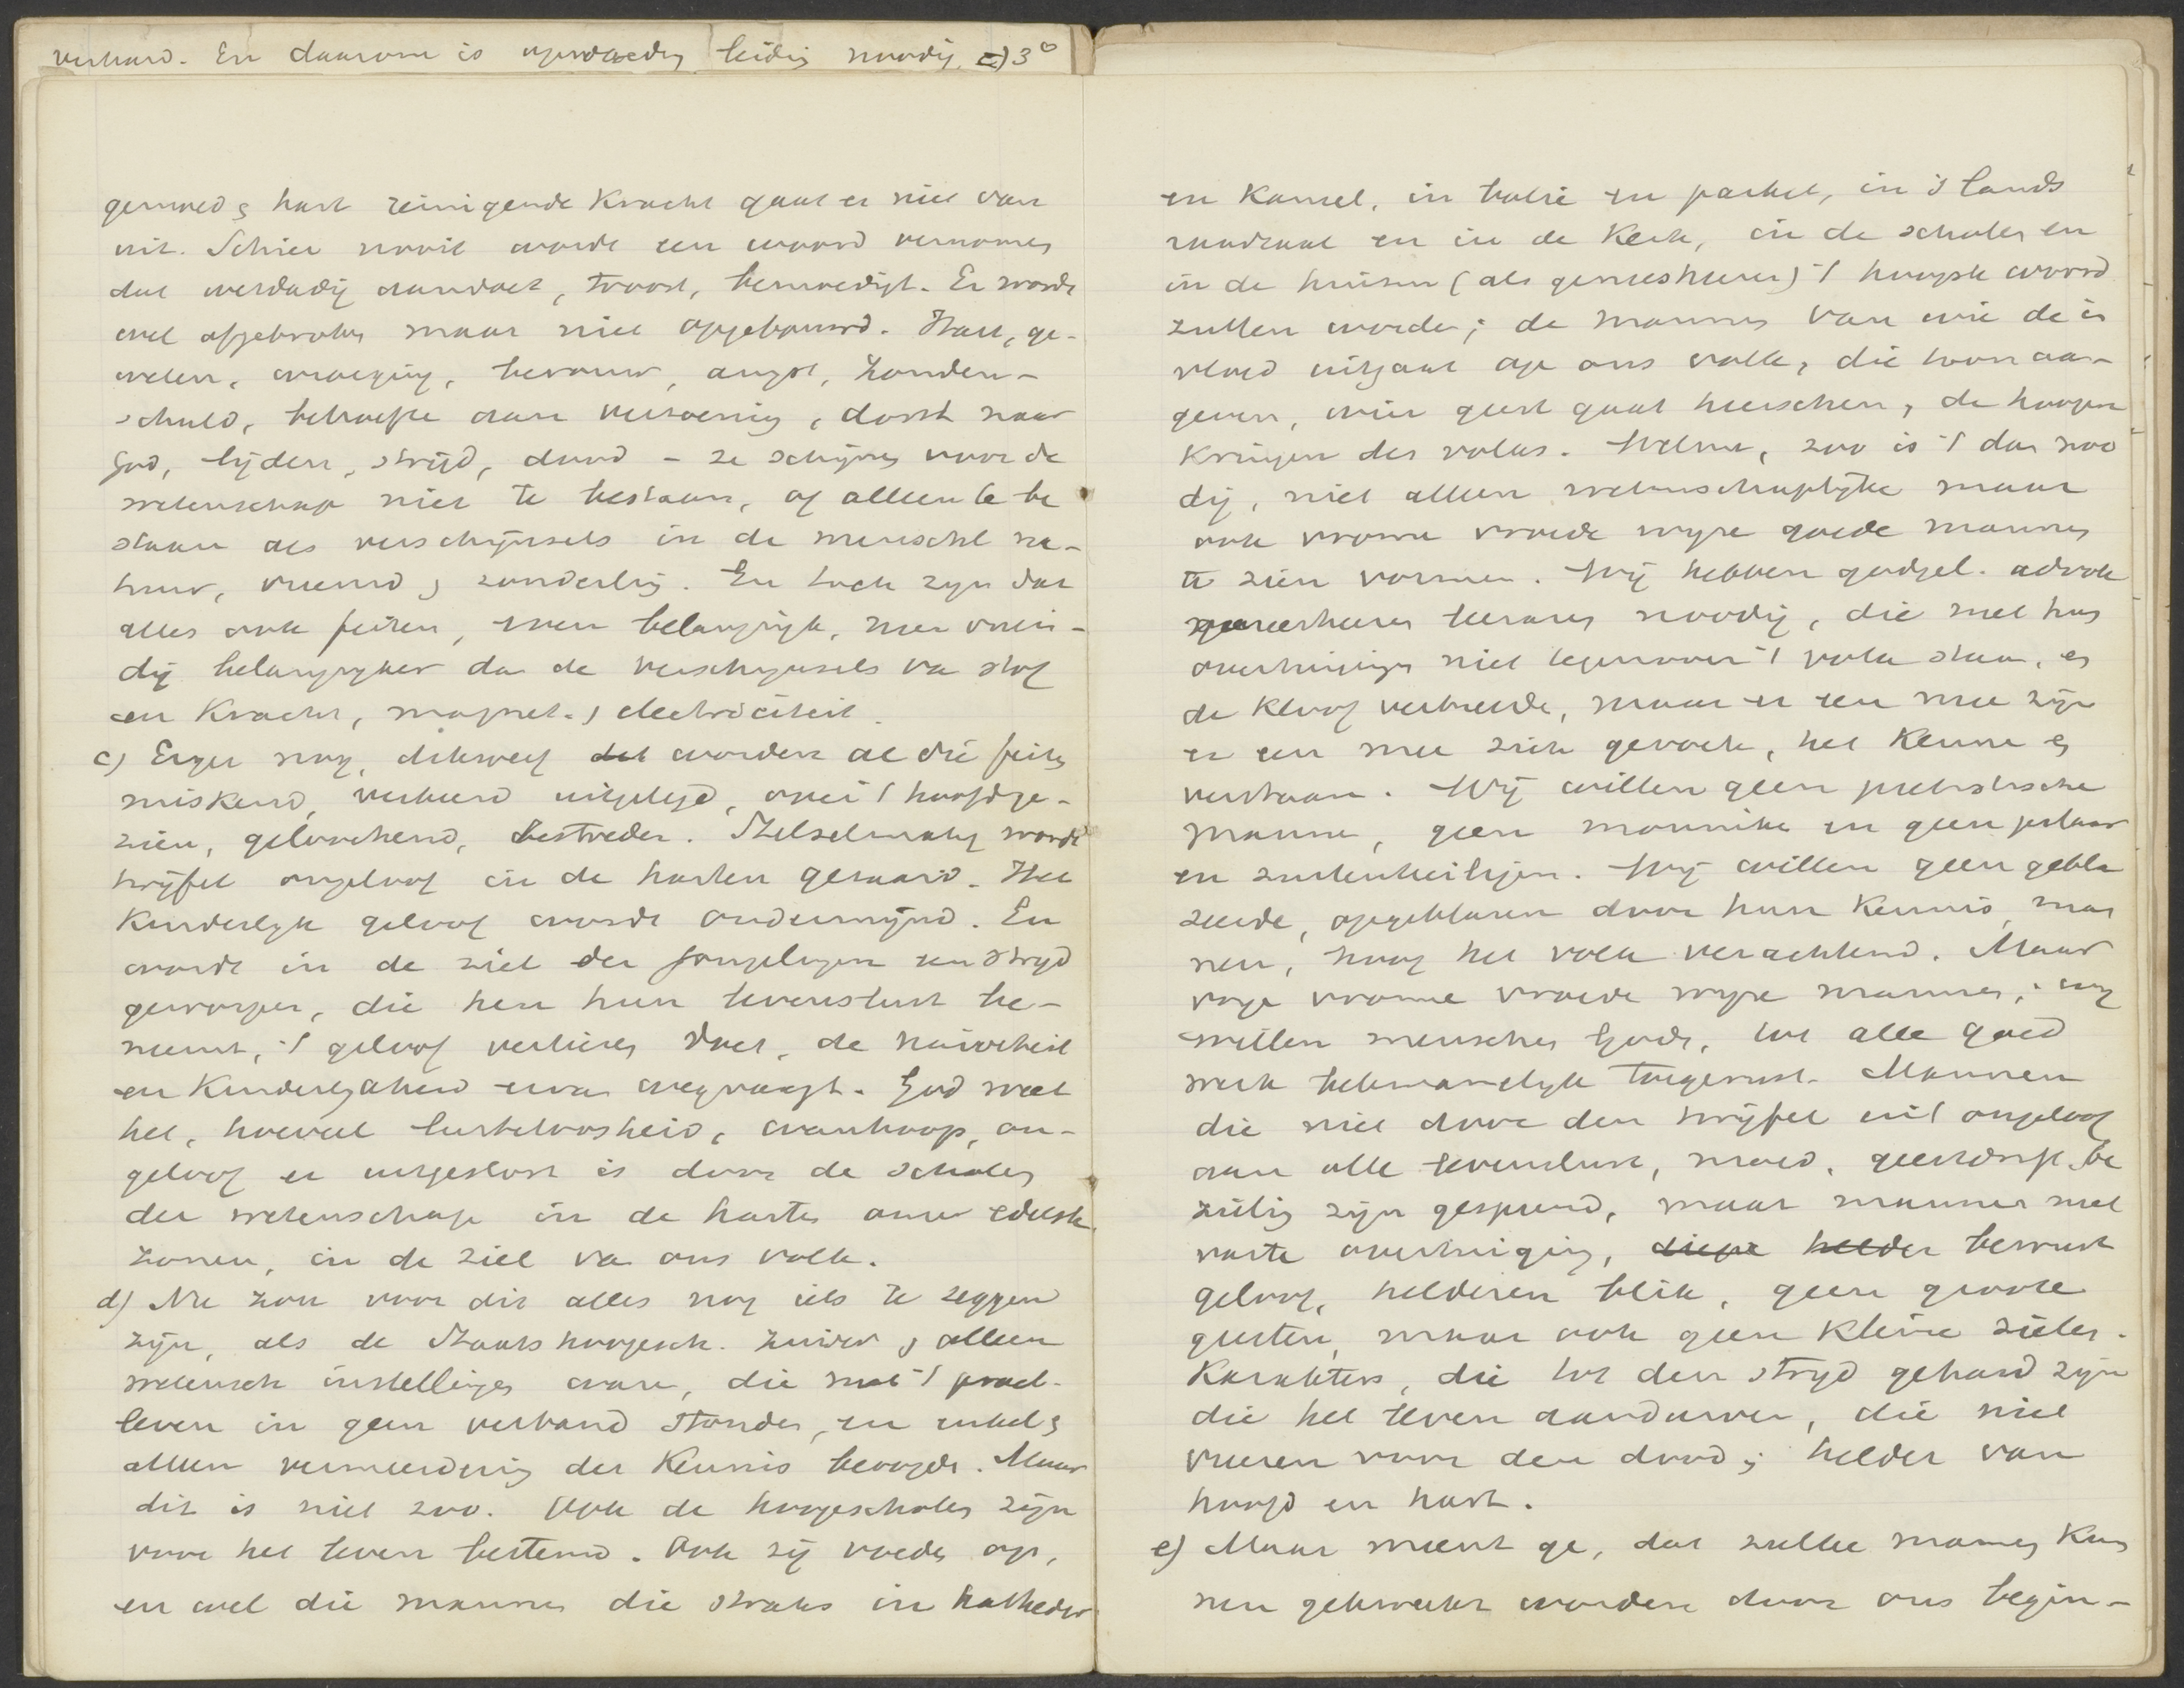 verhard. En daarom is opvoeding leidig noodig. c) 3°
gemoed & hart reinigende kracht gaat er niet van
uit. Schier nooit wordt een woord vernomen
dat weldadig aandoet, troost, bemoedigt. Er wordt
wel afgebroken maar niet opgebouwd. Hart, ge-
weten, wroeging, berouw, angst, zonden-
schuld, behoefte aan verzoening, dorst naar
God, lijden, strijd, dood – ze schijnen voor de
wetenschap niet te bestaan, of alleen te be
staan als verschijnsels in de menschel na-
tuur, vreemd & zonderling. En toch zijn dat
alles ook feiten, even belangrijk, neen onein-
dig belangrijker dan de verschijnsels van stof
en kracht, magnet. & electriciteit.
c) Erger nog, dikwerf dat worden al die feiten
miskend, verkeerd uitgelegd, over 't hoofd ge-
zien, geloochend, bestreden. Stelselmatig wordt
twijfel ongeloof in de harten gezaaid. Het
kinderlijk geloof wordt ondermijnd. En
wordt in de ziel der jongelingen een strijd
geworpen, die hen hun levenslust be-
neemt, 't geloof verliezen doet, de naïveteit
en kinderlijkheid ervan wegvaagt. God weet
het, hoeveel lusteloosheid, wanhoop, on-
geloof er uitgestort is door de scholen
der wetenschap in de harten onzer edelste
zonen, in de ziel van ons volk.
d) Nu zou voor dit alles nog iets te zeggen
zijn, als de Staatshoogesch. zuiver & alleen
wetensch instellingen waren, die met 't pract.
leven in geen verband stonden, en enkel &
alleen vermeerdering der kennis beoogde. Maar
dit is niet zoo. Ook de hoogescholen zijn
voor het leven bestemd. Ook zij voeden op,
en wel die mannen die straks in katheder
en kansel, in balie en parket, in 's lands
raadzaal en in de kerk, in de scholen en
in de huizen (als geneesheeren) 't hoogste woord
zullen worden; de mannen van wie de in
vloed uitgaat op ons volk, die toon aan-
geven, wier geest gaat heerschen, de hoogere
kringen des volks. Welnu, zoo is 't dan noo
dig, niet alleen wetenschaplijke maar
ook vrome vroede wijze goede mannen
te zien vormen. Wij hebben godgel. advok
geneesheeren leeraren noodig, die met hun
overtuigingen niet tegenover 't volk staan, en
de kloof verbreede, maar er een mee zijn
er een mee zich gevoele, het kenne en
verstaan. Wij willen geen piëtistische
manne, geen monnike en geen pilaar
en zuilenheiligen. Wij willen geen gebla
zeerde, opgeblazen door hun kennis, man
nen, hoog het volk verachtend. Maar
vrije vrome vroede wijze mannen; wij
willen menschen Gods, tot alle goed
werk bekwamelijk toegerust. Mannen
die niet door den twijfel en 't ongeloof
aan alle levenslust, moed, geestdrift, be
zieling zijn gespeend, maar mannen met
vaste overtuiging, diepe helder bewust
geloof, helderen blik, geen groote
geesten, maar ook geen kleine zielen.
Karakters, die tot den strijd gehard zijn
die het leven aandurven, die niet
vreezen voor den dood; helder van
hoofd en hart.
e) Maar meent ge, dat zulke mannen kun
nen gekweekt worden door ons begin-